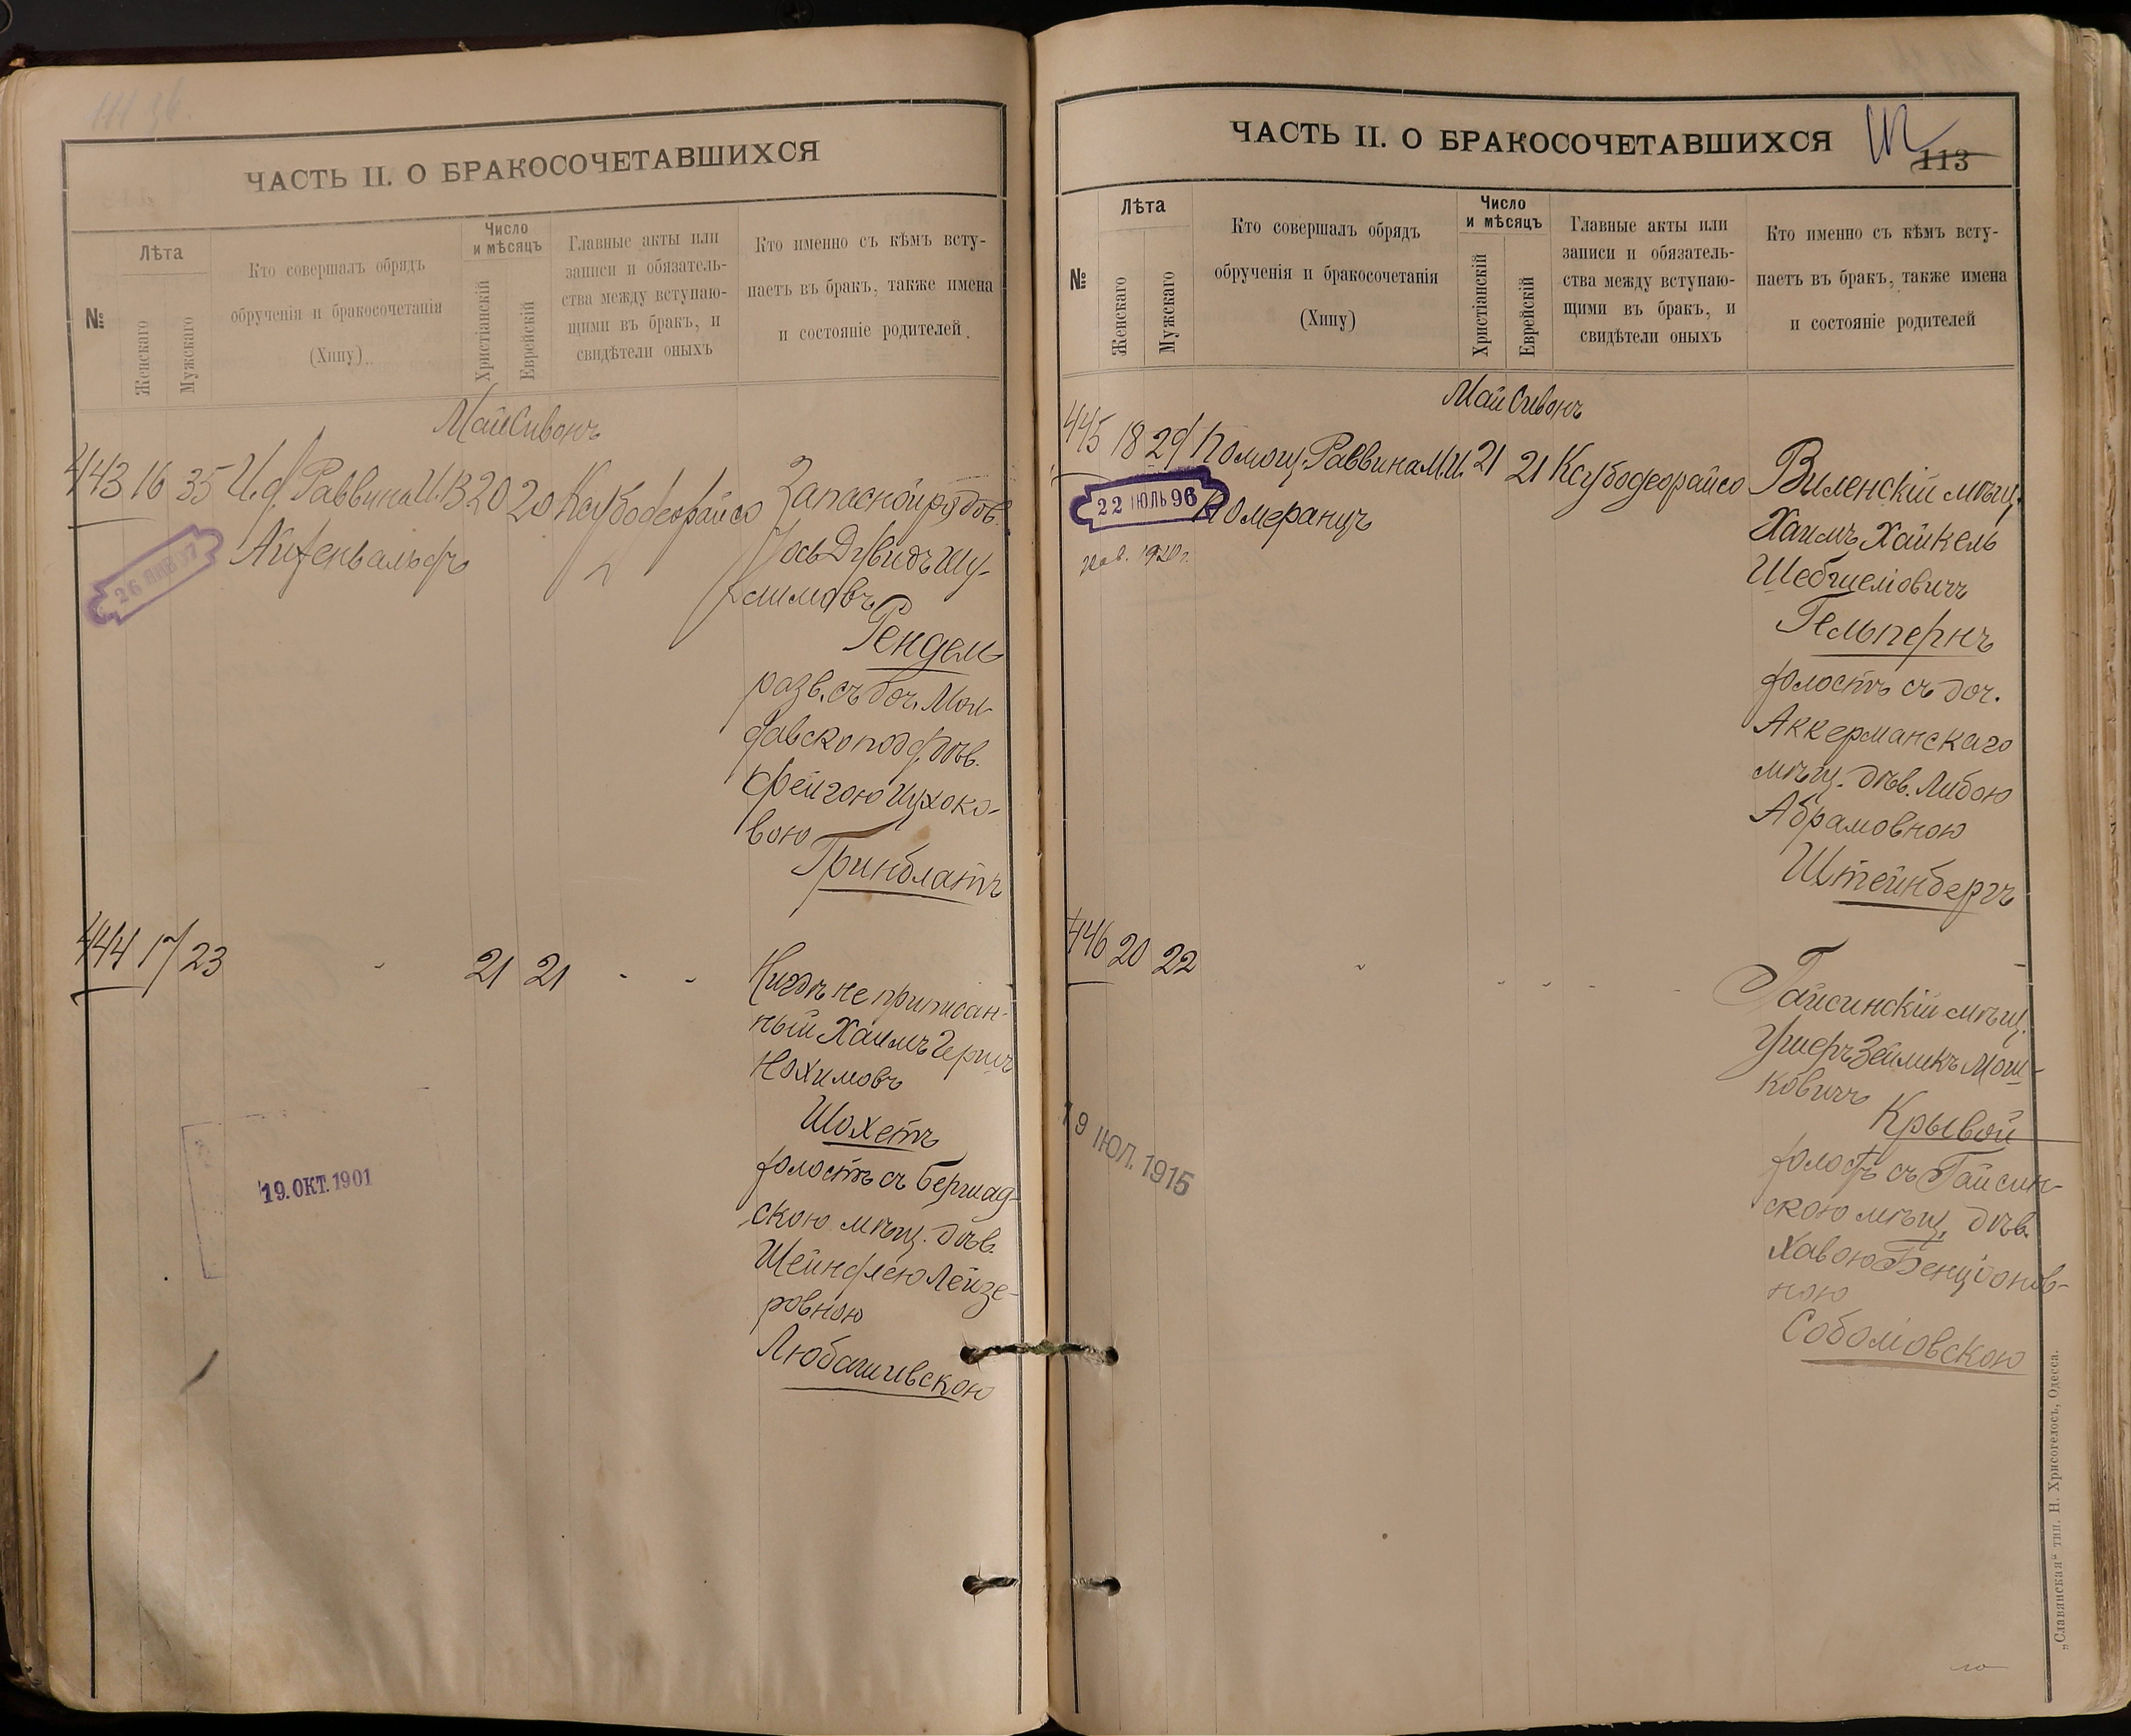 ЧАСТЬ II. О БРАКОСОЧЕТАВШИХСЯ
№
Лѣта
Женскаго
Мужскаго
Кто совершалъ обрядъ
обрученія и бракосочетанія
(Хипу)
Число
и мѣсяцъ
Христіанскій
Еврейскій
Главные акты или
записи и обязатель-
ства между вступаю-
щими въ бракъ, и
свидѣтели оныхъ
Кто именно съ кѣмъ всту-
паетъ въ бракъ, также имена
и состояніе родителей
Май Сивонъ
443 16 35 И.д. Раввина И.В. 20 20 Ксубодеорайсо
Айзенвальдъ
26 ЯНВ 97
Запасной рядов.
Іось Дувидъ Шу-
лимовъ
Рендель
разв. съ доч. Мол-
давско подд. дѣв.
Фейгою Ицхоко-
вою
Гринблатъ
444 17 23 21 21
Нигдѣ не приписан-
ный Хаимъ Гершъ
Нохимовъ
Шохетъ
холостъ съ Бершад-
скою мѣщ. дѣв.
Шейндлею Лейзе-
ровною
Любашевскою
19. ОКТ. 1901
ЧАСТЬ II. О БРАКОСОЧЕТАВШИХСЯ
113
№
Лѣта
Женскаго
Мужскаго
Кто совершалъ обрядъ
обрученія и бракосочетанія
(Хипу)
Число
и мѣсяцъ
Христіанскій
Еврейскій
Главные акты или
записи и обязатель-
ства между вступаю-
щими въ бракъ, и
свидѣтели оныхъ
Кто именно съ кѣмъ всту-
паетъ въ бракъ, также имена
и состояніе родителей
Май Сивонъ
445 18 29 Помощ. Раввина М.И. 21 21 Ксубодеорайсо
Померанцъ
22 ІЮЛЬ 96
1920 г.
Виленскій мѣщ.
Хаимъ Хайкель
Шебшеліовичъ
Гельпернъ
холостъ съ доч.
Аккерманскаго
мѣщ. дѣв. Либою
Абрамовною
Штейнбергъ
446 20 22
Гайсинскій мѣщ.
Ушеръ Зейликъ Мош-
ковичъ
Крывой
холостъ съ Гайсин-
скою мѣщ. дѣв.
Хавою Бенціонов-
ною
Соболіовскою
19 ІЮЛ. 1915
„Славянская“ тип. Н. Хрисогелосъ, Одесса.